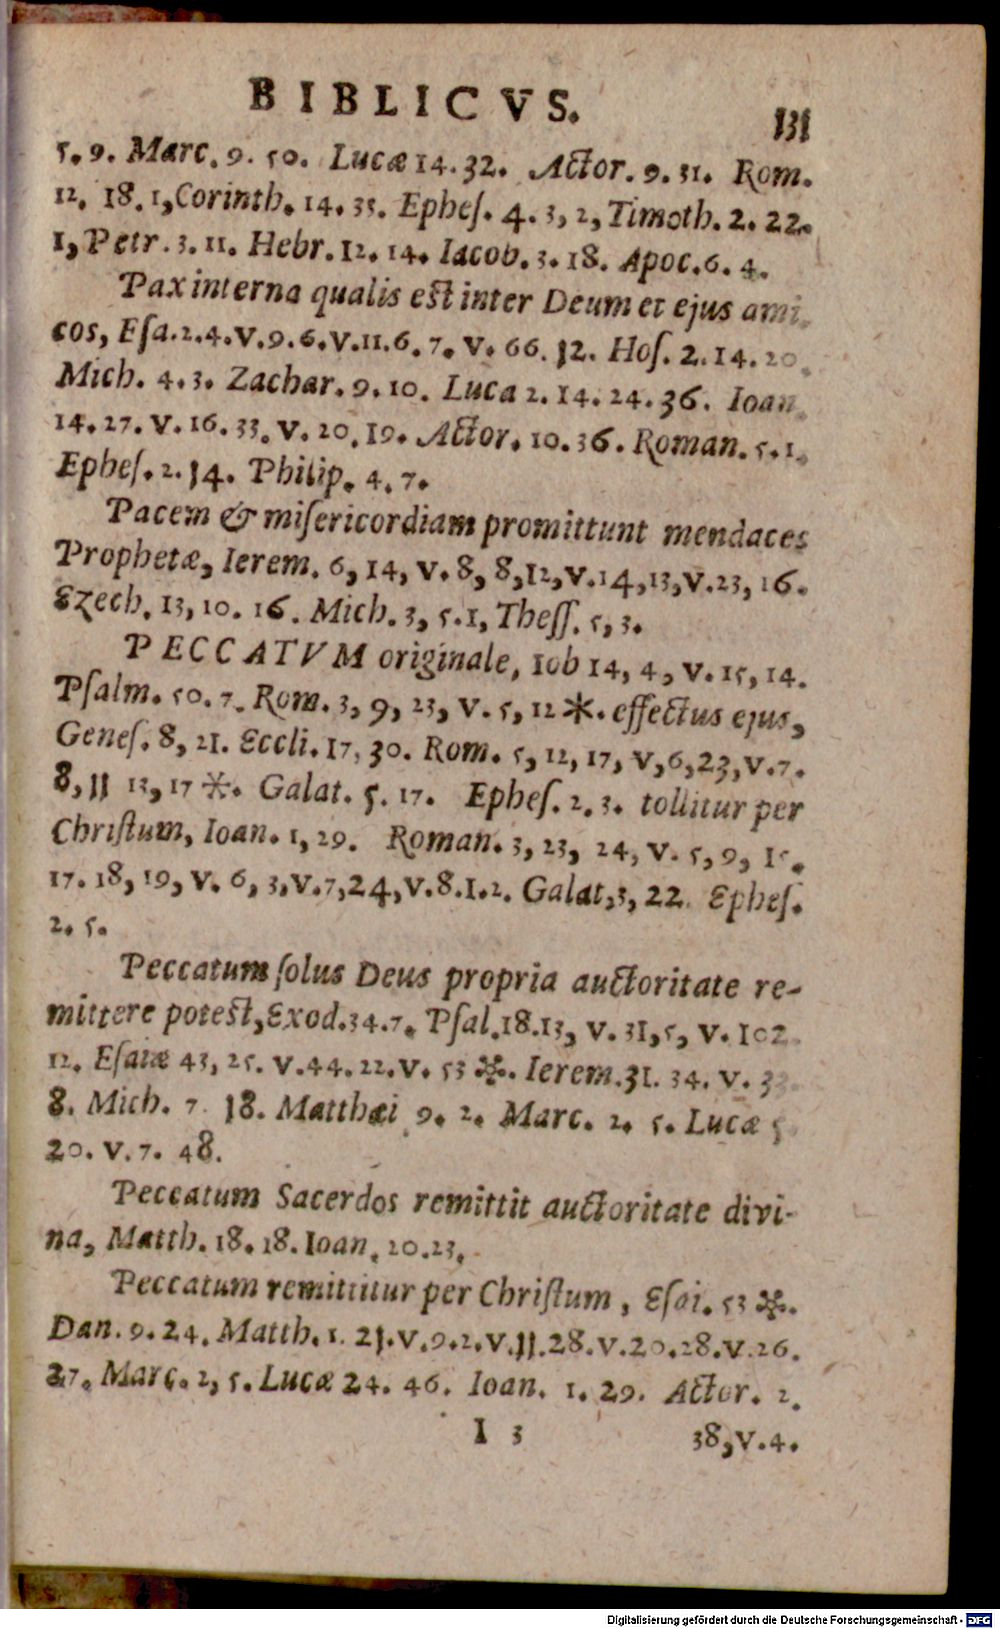 BIBLICVS.
131
5. 9. Marc. 9. 50. Lucæ 14. 32. Actor. 9. 31. Rom.
12. 18. 1, Corinth. 14. 33. Epheſ. 4. 3, 2, Timoth. 2. 22.
1, Petr. 3. 11. Hebr. 12. 14. Iacob. 3. 18. Apoc. 6. 4.
Pax interna qualis est inter Deum et ejus ami-
cos, Eſa. 2. 4. V. 9. 6. V. 11. 6. 7. V. 66. 12. Hoſ. 2. 14. 20.
Mich. 4. 3. Zachar. 9. 10. Luca 2. 14. 24. 36. Ioan.
14. 27. V. 16. 33. V. 20. 19. Actor. 10. 36. Roman. 5. 1.
Epheſ. 2. 14. Philip. 4. 7.
Pacem & miſericordiam promittunt mendaces
Prophetæ, Ierem. 6, 14, V. 8, 8, 12, V. 14, 13, V. 23, 16.
Ezech. 13, 10. 16. Mich. 3, 5. 1, Theſſ. 5, 3.
PECCATVM originale, Iob 14, 4, V. 15, 14.
Pſalm. 50. 7. Rom. 3, 9, 23, V. 5, 12 *. effectus ejus,
Geneſ. 8, 21. Eccli. 17, 30. Rom. 5, 12, 17, V, 6, 23, V. 7.
8, 11 13, 17 *. Galat. 5. 17. Epheſ. 2. 3. tollitur per
Chriſtum, Ioan. 1, 29. Roman. 3, 23, 24, V. 5, 9, 15.
17. 18, 19, V. 6, 3, V. 7, 24, V. 8. 1. 2. Galat, 3, 22. Epheſ.
2. 5.
Peccatum ſolus Deus propria auctoritate re-
mittere potest, Exod. 34. 7. Pſal. 18. 13, V. 31, 5, V. 102.
12. Eſaiæ 43, 25. V. 44. 22. V. 53 *. Ierem. 31. 34. V. 33.
8. Mich. 7. 18. Matthæi 9. 2. Marc. 2. 5. Lucæ 5.
20. V. 7. 48.
Peccatum Sacerdos remittit auctoritate divi-
na, Matth. 18. 18. Ioan. 20. 23.
Peccatum remittitur per Chriſtum, Eſai. 53 *.
Dan. 9. 24. Matth. 1. 21. V. 9. 2. V. 11. 28. V. 20. 28. V. 26.
27. Marc. 2, 5. Lucæ 24. 46. Ioan. 1. 29. Actor. 2.
I 3
38, V. 4.
Digitalisierung gefördert durch die Deutsche Forschungsgemeinschaft - DFG